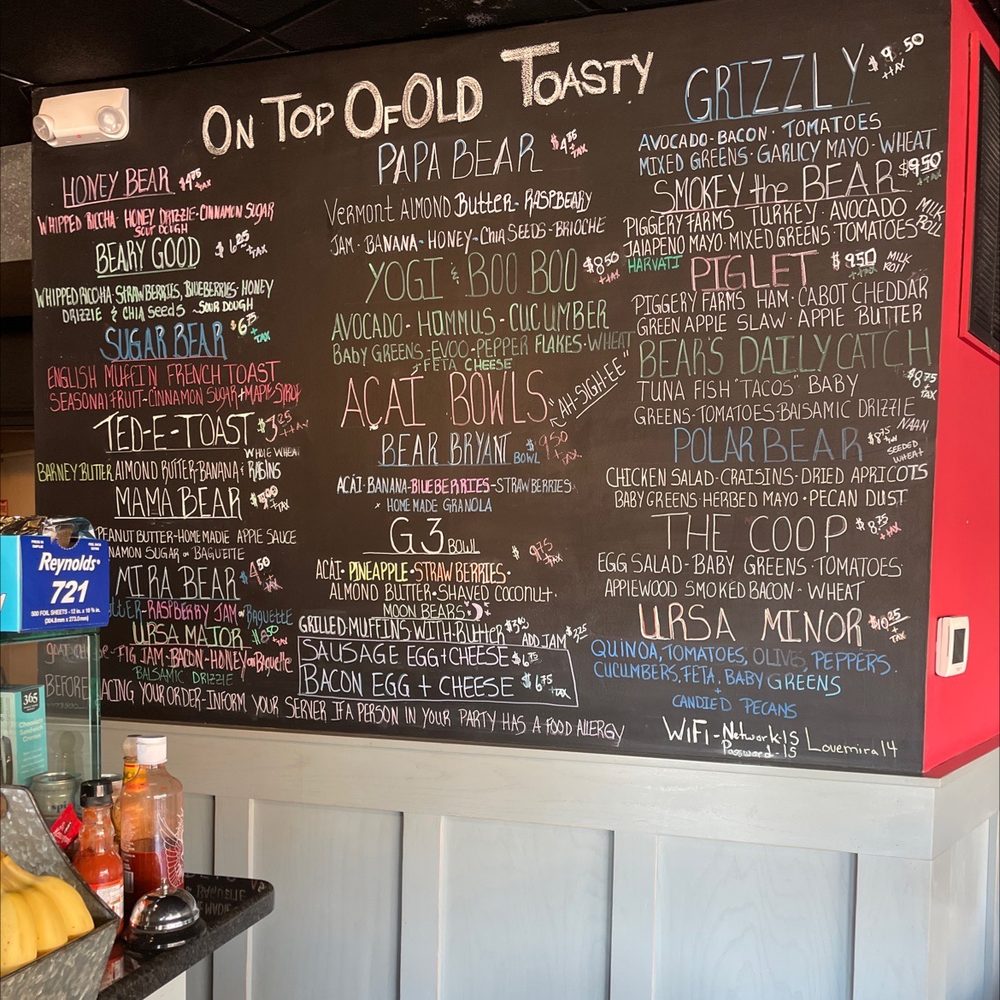 ON TOP OF OLD TOASTY
HONEY BEAR
+TAX
WHIPPED RICCHA· HONEY DRIZZLE·CINNAMON SUGAR
SOUR DOUGH
BEARY GOOD $6.25
+TAX
WHIPPED RICOHA·STRAWBERRIES, BLUEBERRIES·HONEY
DRIZZLE & CHIA SEEDS ~SOUR DOUGH
SUGAR BEAR
+TAX
ENGLISH MUFFIN FRENCH TOAST
SEASONAL FRUIT-CINNAMON SUGAR+MAPLE SYRUP
TED-E-TOAST $3.25
+TAX
WHOLE WHEAT
BARNEY BUTTER ALMOND BUTTER·BANANA & RAISINS
MAMA BEAR
+TAX
PEANUT BUTTER·HOMEMADE APPLE SAUCE
NAMON SUGAR or BAGUETTE
MIRA BEAR
+TAX
TTER-RASPBERRY JAM or Baguette
URSA MAJOR
+TAX
-FIG JAM-BACON-HONEY or Baguette
BALSAMIC DRIZZLE
ACING YOUR ORDER-INFORM YOUR SERVER IF A PERSON IN YOUR PARTY HAS A FOOD ALLERGY
PAPA BEAR
+TAX
VERMONT ALMOND BUTTER - RASPBEARY
JAM · BANANA - HONEY - CHIA SEEDS - BRIOCHE
YOGI & BOO BOO $8.50
+TAX
AVOCADO - HUMMUS - CUCUMBER
BABY GREENS - EVOO - PEPPER FLAKES - WHEAT
+FETA CHEESE
AÇAÍ BOWLS "AH-SIGH-EE"
BEAR BRYANT BOWL $9.50
+TAX
AÇAI·BANANA·BLUEBERRIES·STRAWBERRIES
+ HOMEMADE GRANOLA
G3 BOWL $9.75
+TAX
AÇAI·PINEAPPLE·STRAWBERRIES·
ALMOND BUTTER·SHAVED COCONUT·
MOON BEARS
GRILLED MUFFINS WITH BUTTER ADD JAM
SAUSAGE EGG+CHEESE $6.75
+TAX
BACON EGG + CHEESE $6.75
+TAX
GRIZZLY $9.50
+TAX
AVOCADO·BACON · TOMATOES
MIXED GREENS · GARLICY MAYO · WHEAT
SMOKEY the BEAR $9.50
+TAX
PIGGERY FARMS TURKEY · AVOCADO MILK
JALAPENO MAYO·MIXED GREENS·TOMATOES ROLL
HARVATI
PIGLET $9.50
+TAX
MILK
ROLL
PIGGERY FARMS HAM · CABOT CHEDDAR
GREEN APPLE SLAW · APPLE BUTTER
BEAR'S DAILY CATCH $8.75
+TAX
TUNA FISH "TACOS" BABY
GREENS·TOMATOES·BALSAMIC DRIZZLE
NAAN
POLAR BEAR $8.75
SEEDED
WHEAT
CHICKEN SALAD·CRAISINS·DRIED APRICOTS
BABY GREENS·HERBED MAYO·PECAN DUST
THE COOP $8.75
+TAX
EGG SALAD·BABY GREENS·TOMATOES
APPLEWOOD SMOKED BACON·WHEAT
URSA MINOR $10.25
+TAX
QUINOA, TOMATOES, OLIVES, PEPPERS.
CUCUMBERS, FETA, BABY GREENS
+
CANDIED PECANS
WiFi - Network-15
Password-15 Lovemira14
Reynolds®
721
500 FOIL SHEETS - 12 in. x 10 3/4 in.
(304.8mm x 273.0mm)
BEFORE
365
Chocolate
Sandwich
Cremes